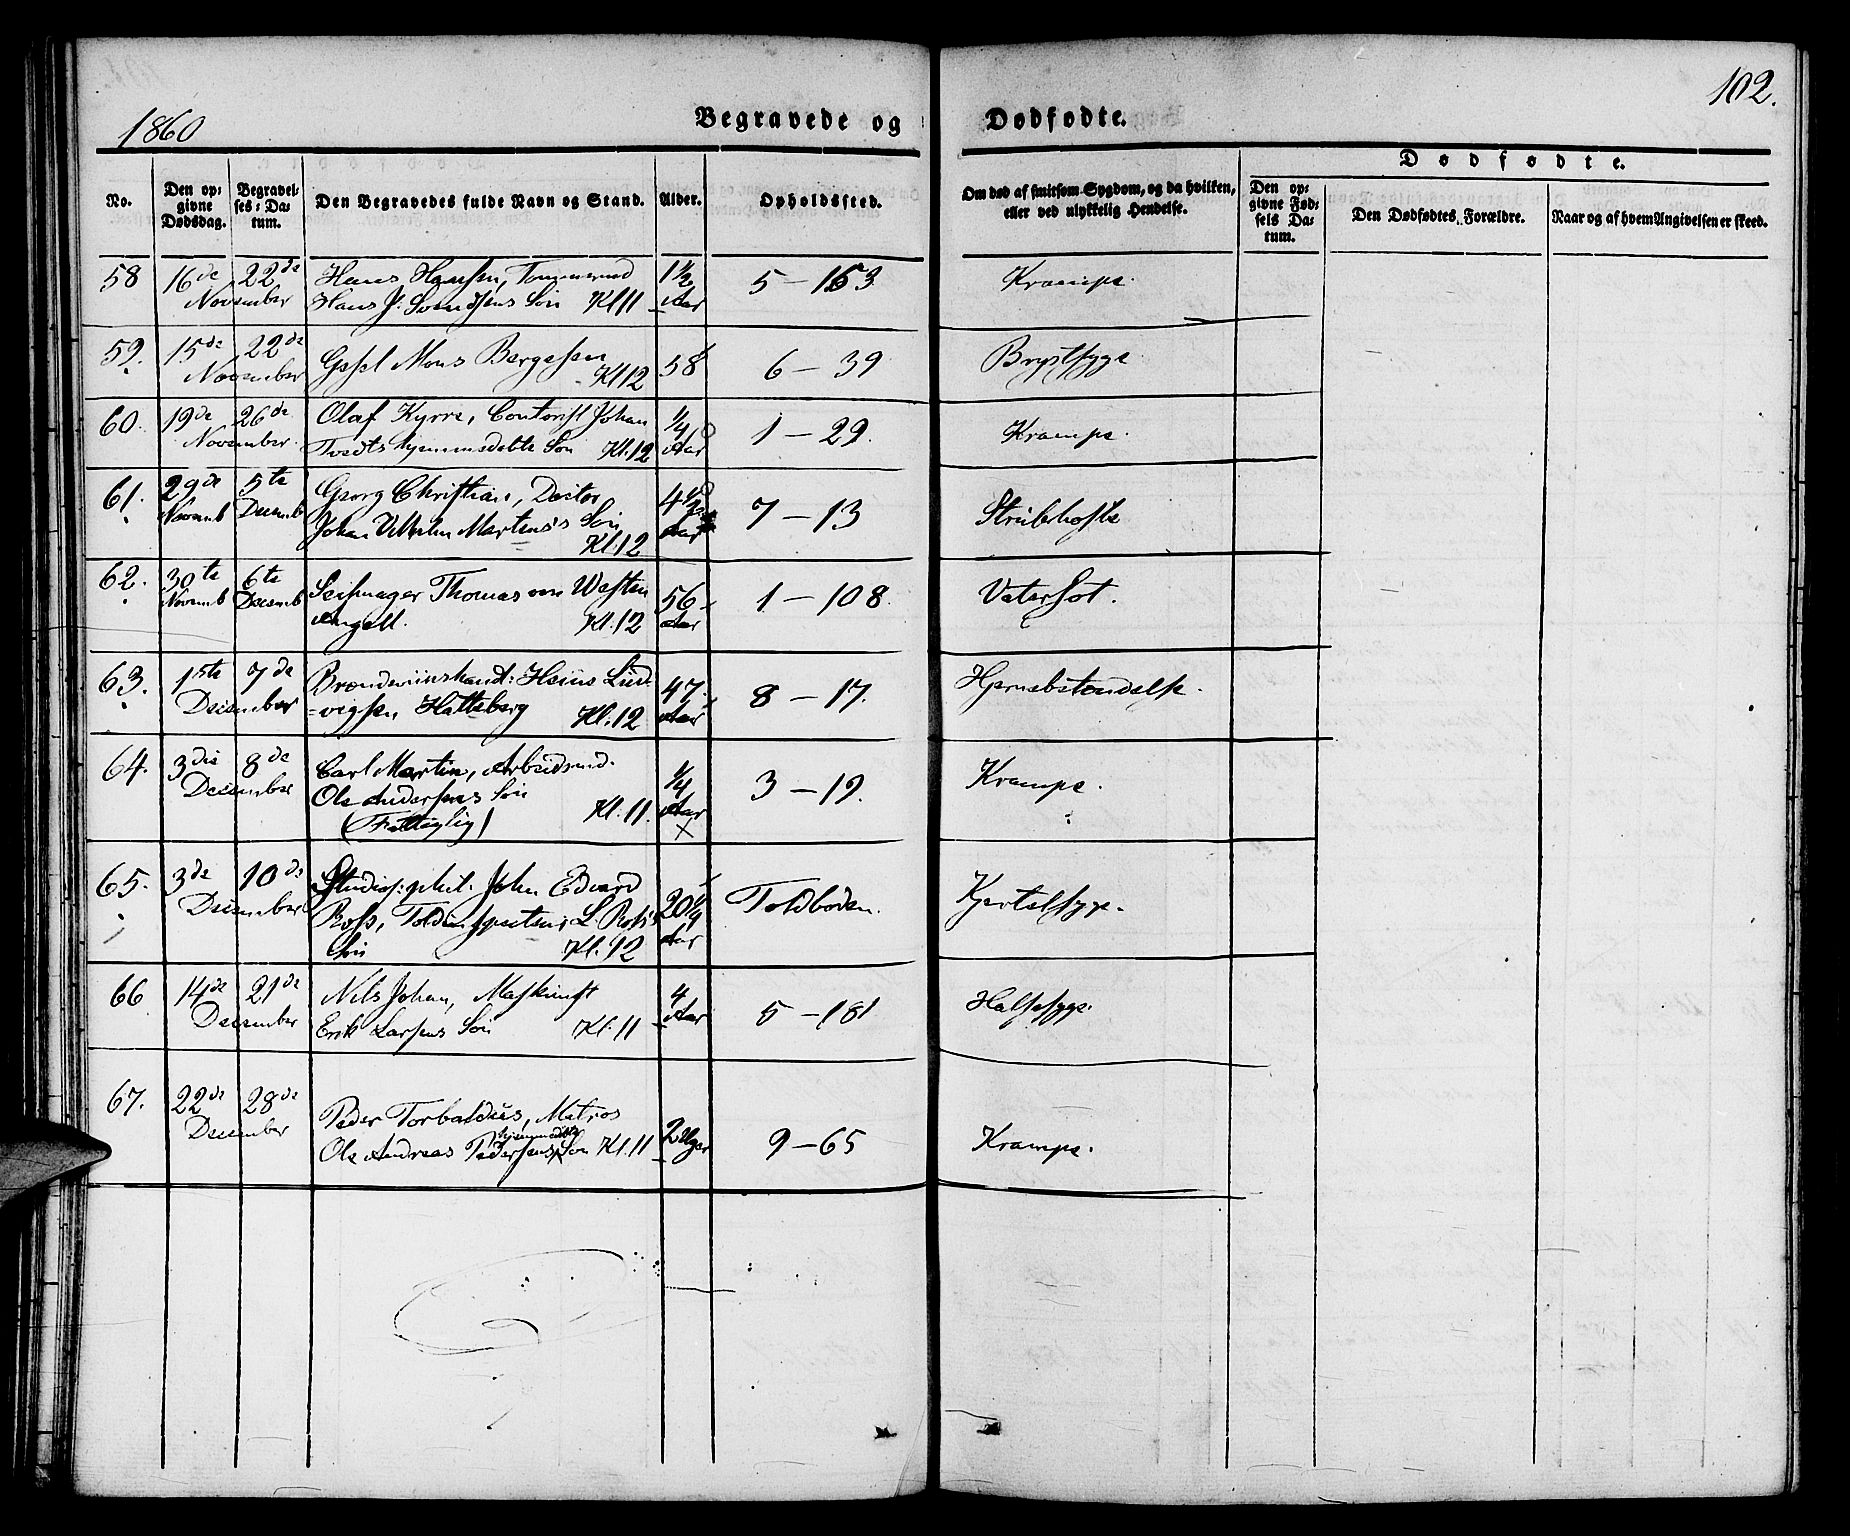 102.
1860
Begravede og Dødfødte.
No.
Den opgivne Dødsdag.
Begravelses-Datum.
Den Begravedes fulde Navn og Stand.
Alder.
Opholdssted.
Om død af smitsom Sygdom, og da hvilken, eller ved ulykkelig Hendelse.
Dødfødte.
Den opgivne Fødsels Datum.
Den Dødfødtes Forældre.
Naar og af hvem Angivelsen er skeed.
58 16de 22de Hans Hansen, Tømmermd 1½ 5 – 153 Krampe.
November Hans J. Svendsens Søn Kl 11 Aar
59. 15de 22de Gjsel Mons Børgesen 58 6 – 39 Brystsyge
November Kl 12
60. 19de 26de Olaf Kyrre, Contorist Johan ¼ 1 – 29. Krampe.
November Tvedts hjemmedøbte Søn Kl. 12 Aar
61. 29de 5te Georg Christian, Doctor 4½ 7 – 13 Strubehoste
Novemb Decemb Johan Vilhelm Martens's Søn Aar
Kl. 12
62. 30te 6te Seilmager Thomas von Westen 56 1 – 108. Vatersot.
Novemb Decemb Angell. Kl. 12 Aar
63. 1ste 7de Brændeviinshand: Heins Lüd- 47. 8 – 17. Hjernebetændelse.
December =vigsen Hatteberg Kl. 12 Aar
64. 3die 8de Carl Martin, Arbeidsmd. ¼ 3 – 19. Krampe.
December Ole Andersens Søn Kl. 11. Aar
(Fattiglig) x
65. 3de 10de Studios: phil. John Edvard 20¼ Toldboden. Kjertelsyge.
December Ross, Toldinspecteur L. Ross's Aar
Søn Kl. 12
66 14de 21de Nils Johan, Maskinist 4 5 – 181 Halssyge.
December Erik Larsens Søn Kl. 11 Aar
67. 22de 28de Peder Torbaldius, Matros 2 Uger 9 – 65 Krampe.
December Ole Andreas Pedersens hjemmedøbte Søn Kl. 11